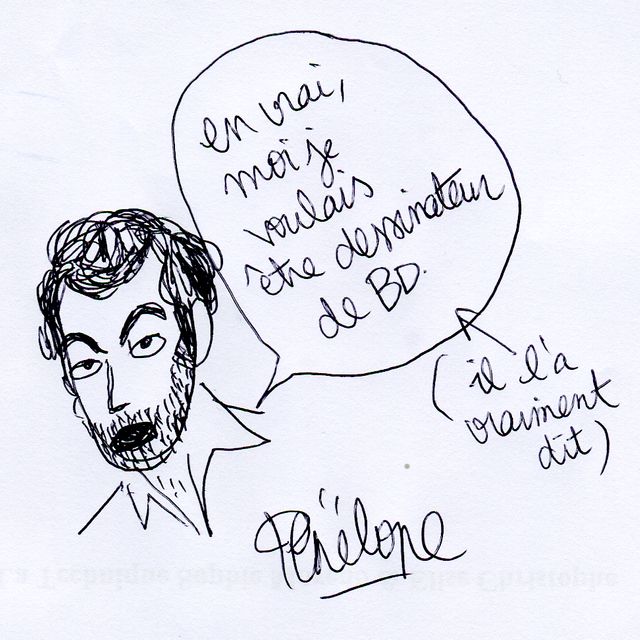 en vrai,
moi je
voulais
être dessinateur
de BD.
(il l'a
vraiment
dit)
Pénélope